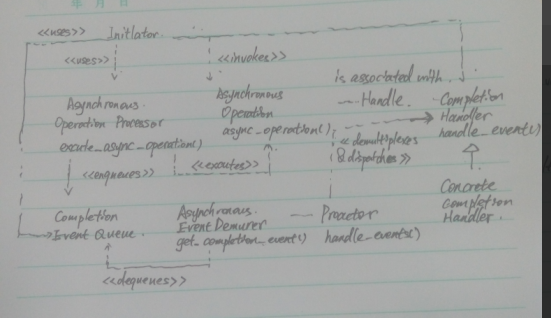 年 月 日
<<uses>> Initiator
<<uses>>
<<invokes>>
is associated with
Asynchronous
Operation Processor
execute_async_operation()
Asynchronous
Operation
async_operation()
Handle
Completion
Handler
handle_event()
<<demultiplexes
& dispatches>>
<<enqueues>>
<<excutes>>
Concrete
Completion
Handler
Completion
Event Queue
Asynchronous
Event Demuxer
get_completion_event()
Proactor
handle_events()
<<dequeues>>